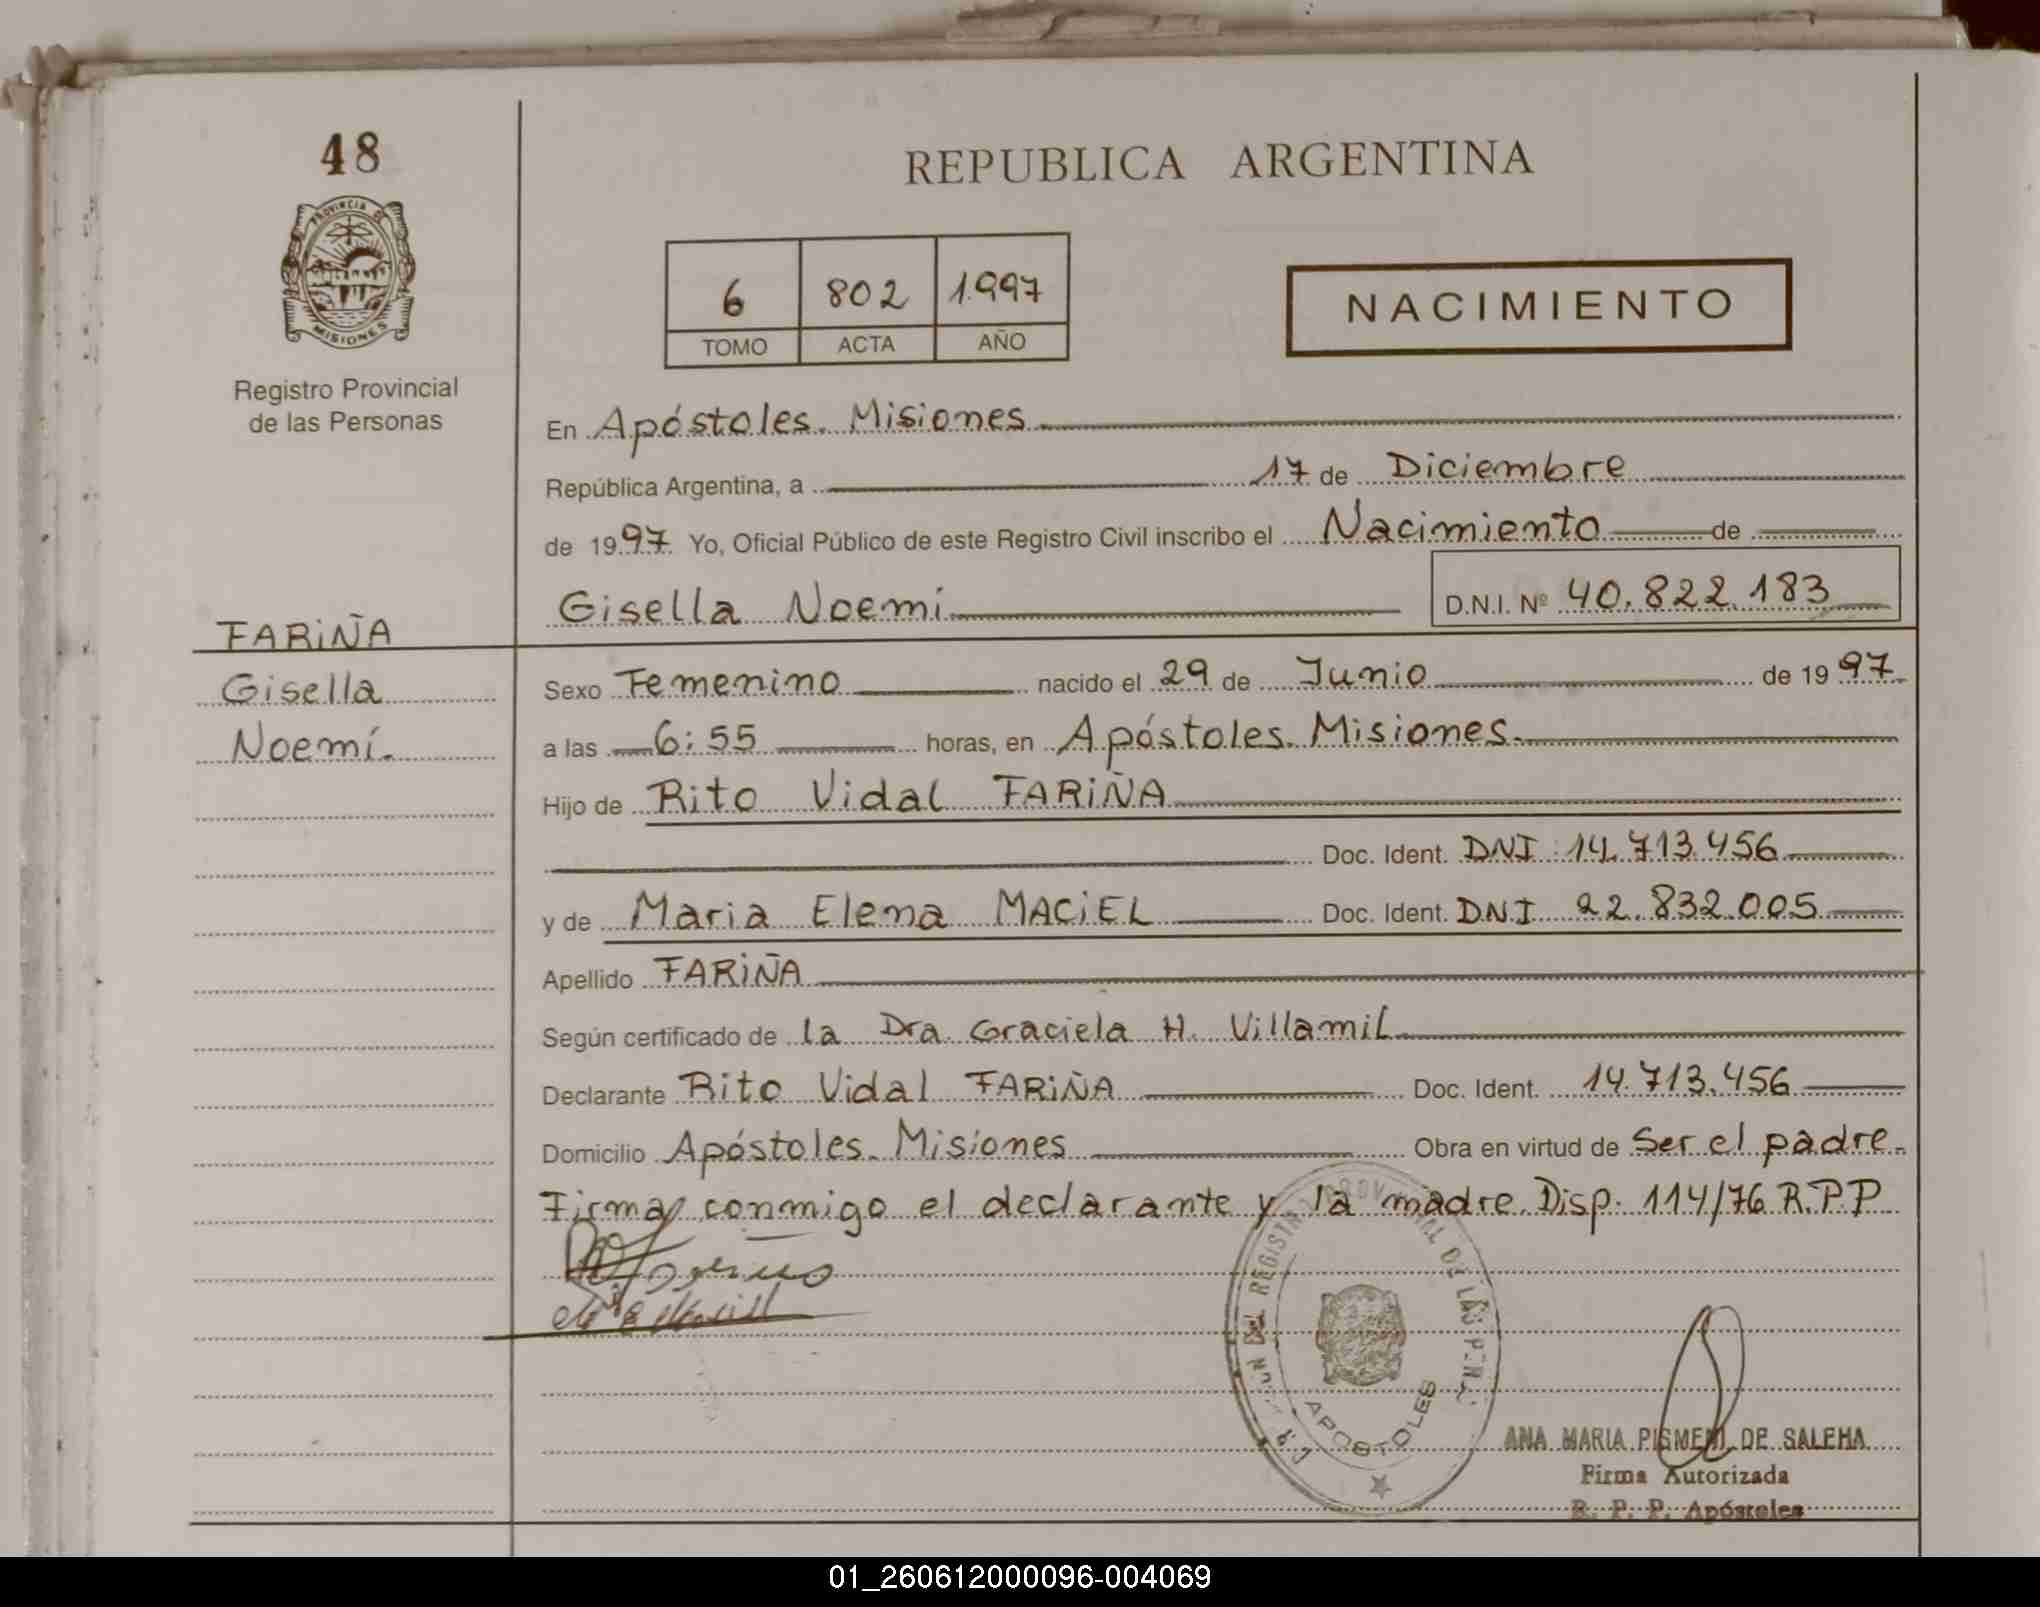 48
REPUBLICA ARGENTINA
PROVINCIA DE
MISIONES
Registro Provincial
de las Personas
6 802 1.997
TOMO ACTA AÑO
NACIMIENTO
En Apóstoles. Misiones
República Argentina, a 17 de Diciembre
de 1997 Yo, Oficial Público de este Registro Civil inscribo el Nacimiento de
Gisella Noemí D.N.I. Nº 40.822.183
FARIÑA
Gisella
Noemí.
Sexo Femenino nacido el 29 de Junio de 1997
a las 6:55 horas, en Apóstoles. Misiones.
Hijo de Rito Vidal FARIÑA
Doc. Ident. DNI 14.713.456
y de Maria Elena MACIEL Doc. Ident. DNI 22.832.005
Apellido FARIÑA
Según certificado de la Dra. Graciela H. Villamil
Declarante Rito Vidal FARIÑA Doc. Ident. 14.713.456
Domicilio Apóstoles. Misiones Obra en virtud de Ser el padre.
Firma conmigo el declarante y la madre. Disp. 114/76 R.P.P
DEL REGISTRO PROVINCIAL DE LAS
APOSTOLES
ANA MARIA PISMENI DE SALEHA
Firma Autorizada
R. P. P. Apóstoles
01_260612000096-004069